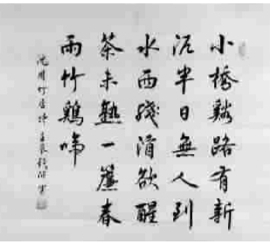 小橋谿路有新
泥半日無人到
水西殘酒欲醒
茶未熟一簾春
雨竹鷄啼